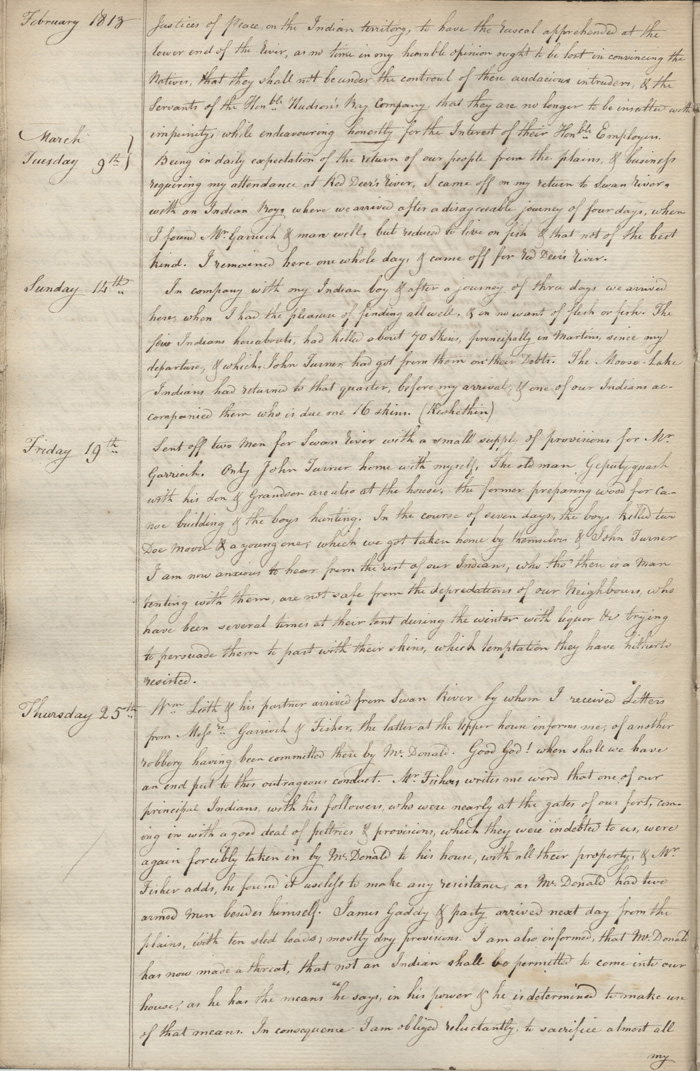 February 1813 Justices of Peace, on the Indian territory, to have the rascal apprehended at the
lower end of the River, as no time in my humble opinion ought to be lost in convincing the
Natives, that they shall not be under the controul of these audacious intruders, & the
Servants of the Hon.ble Hudson's Bay Company, that they are no longer to be insulted with
impunity, while endeavouring honestly for the Interest of their Hon.ble Employers.
March
Tuesday 9th Being in daily expectation of the return of our people from the plains, & business
requiring my attendance at Red Deer's River, I came off on my return to Swan River,
with an Indian Boy, where we arrived after a disagreeable journey of four days, when
I found Mr. Garrioch & man well, but reduced to live on fish & that not of the best
kind. I remained here one whole day & came off for Red Deers River.
Sunday 14th In company with my Indian boy & after a journey of three days we arrived
here, when I had the pleasure of finding all well, & in no want of flesh or fish. The
few Indians hereabouts, had killed about 70 Skins, principally in Martins, since my
departure, & which John Turner had got from them on their Debts. The Moose Lake
Indians had returned to that quarter, before my arrival, & one of our Indians ac-
companied them who is due me 16 skins.
Friday 19th Sent off two Men for Swan River with a small supply of provisions for Mr.
Garrioch. Only John Turner home with myself. The old man
with his son & Grandson are also at the house, the former preparing wood for ca-
noe building & the boys hunting. In the course of seven days, the boys killed two
Doe Moose & a young one, which we got taken home by themselves & John Turner
I am now anxious to hear from the rest of our Indians, who tho' there is a Man
tenting with them, are not safe from the depredations of our Neighbours, who
have been several times at their tent during the winter with liquor &c trying
to persuade them to part with their skins, which temptation they have hitherto
resisted.
Thursday 25th Wm. Leith & his partner arrived from Swan River by whom I received Letters
from Messrs. Garrioch & Fisher, the latter at the Upper house informs me, of another
robbery having been committed there by Mc.Donald. Good God! when shall we have
an end put to this outrageous conduct. Mr. Fisher, writes me word that one of our
principal Indians, with his followers, who were nearly at the gates of our fort, com-
ing in with a good deal of peltries & provisions, which they were indebted to us, were
again forcibly taken in by Mc.Donald to his house, with all their property, & Mr.
Fisher adds, he found it useless to make any resistance, as Mc.Donald had two
armed Men besides himself. James Gaddy & party arrived next day from the
plains, with ten sled loads, mostly dry provisions. I am also informed, that Mc.Donald
has now made a threat, that not an Indian shall be permitted to come into our
house, as he has the means "he says, in his power & he is determined to make use
of that means. In consequence I am obliged reluctantly to sacrifice almost all
my